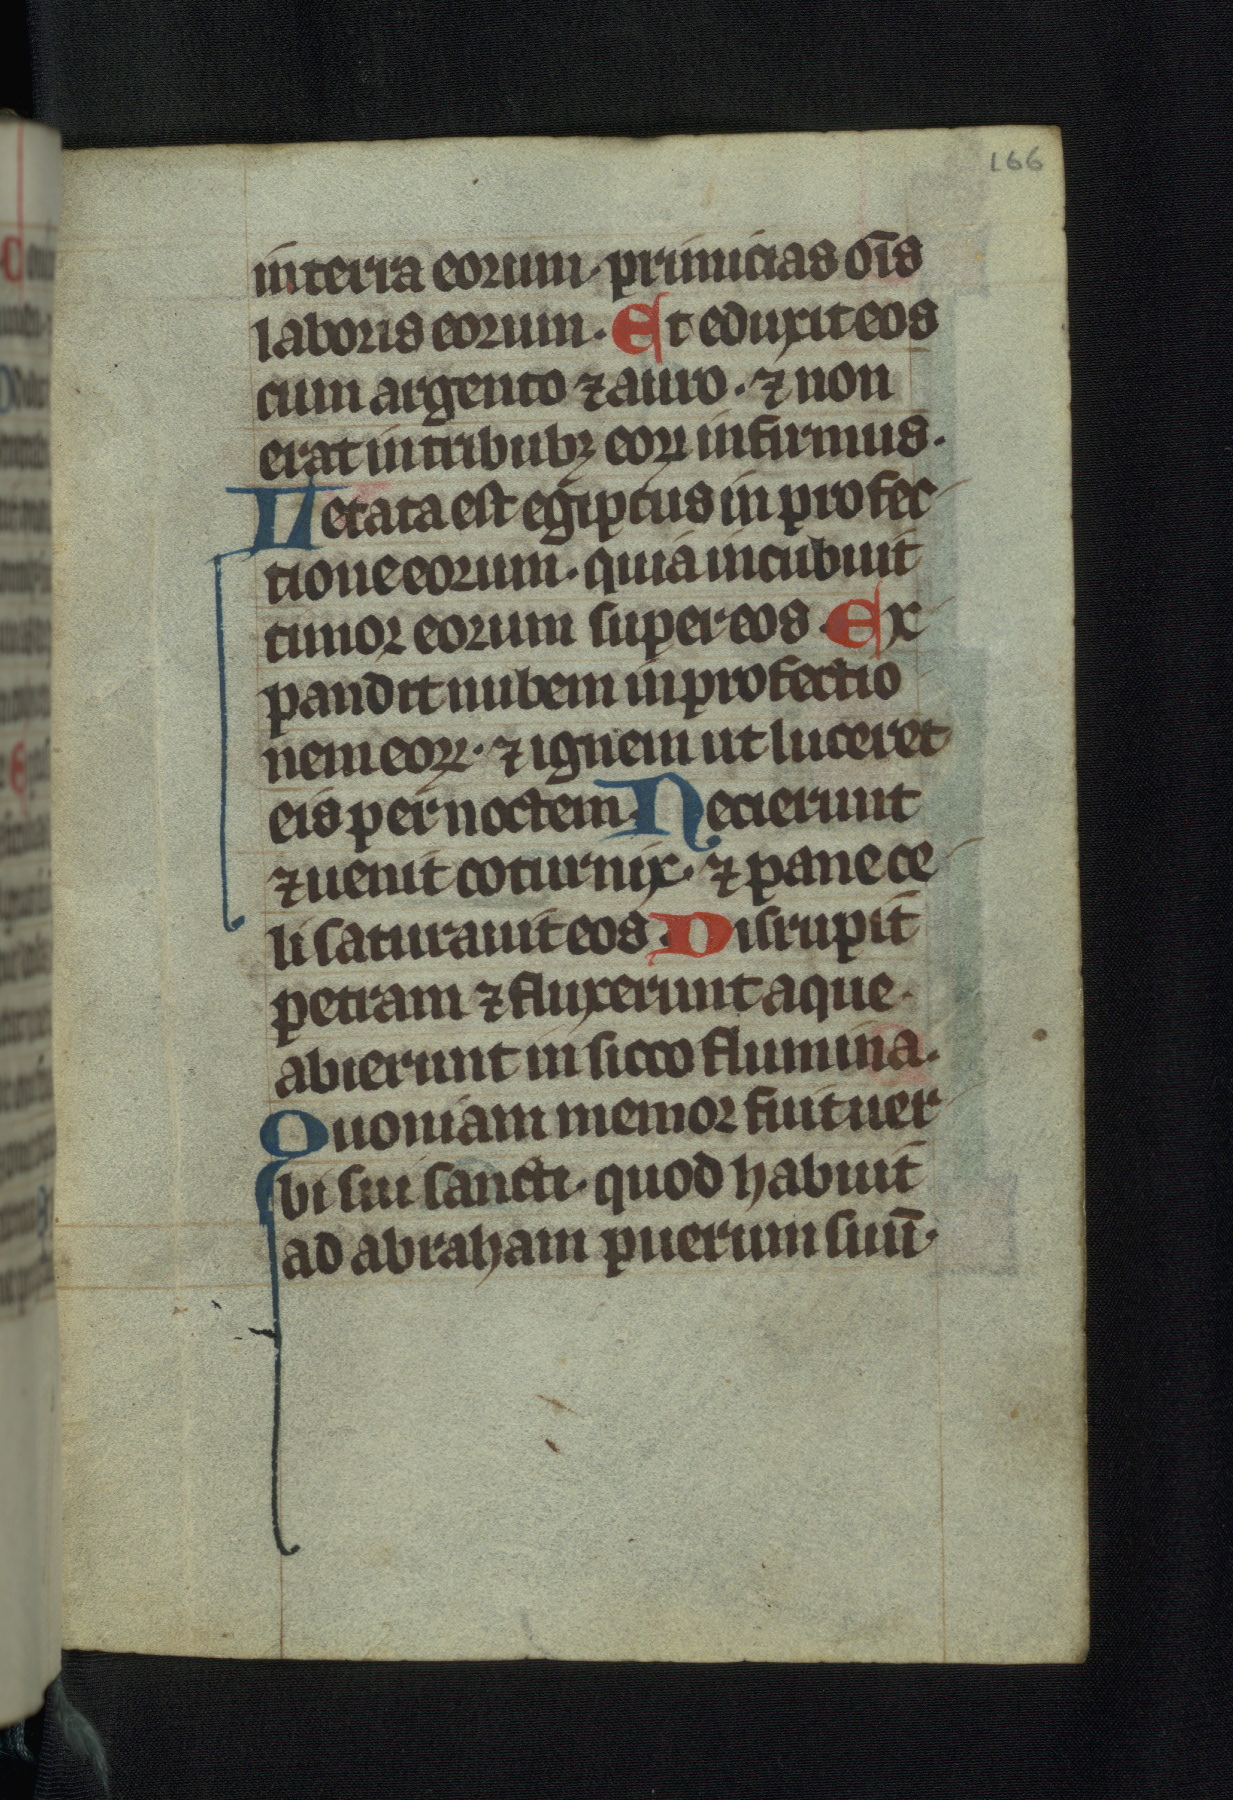 166
in terra eorum · primicias oīs
laboris eorum · Et eduxit eos
cum argento ⁊ auro · ⁊ non
erat in tribubꝫ eoꝝ infirmus ·
Letata est egiptus in profec
tione eorum · quia incubuit
timor eorum super eos · Ex
pandit nubem in protectio
nem eoꝝ · ⁊ ignem ut luceret
eis per noctem · Pecierunt
⁊ uenit coturnix · ⁊ pane ce
li saturauit eos · Disrupit
petram ⁊ fluxerunt aque ·
abierunt in sicco flumina ·
Quoniam memor fuit uer
bi sui sancti · quod habuit
ad abraham puerum suū ·